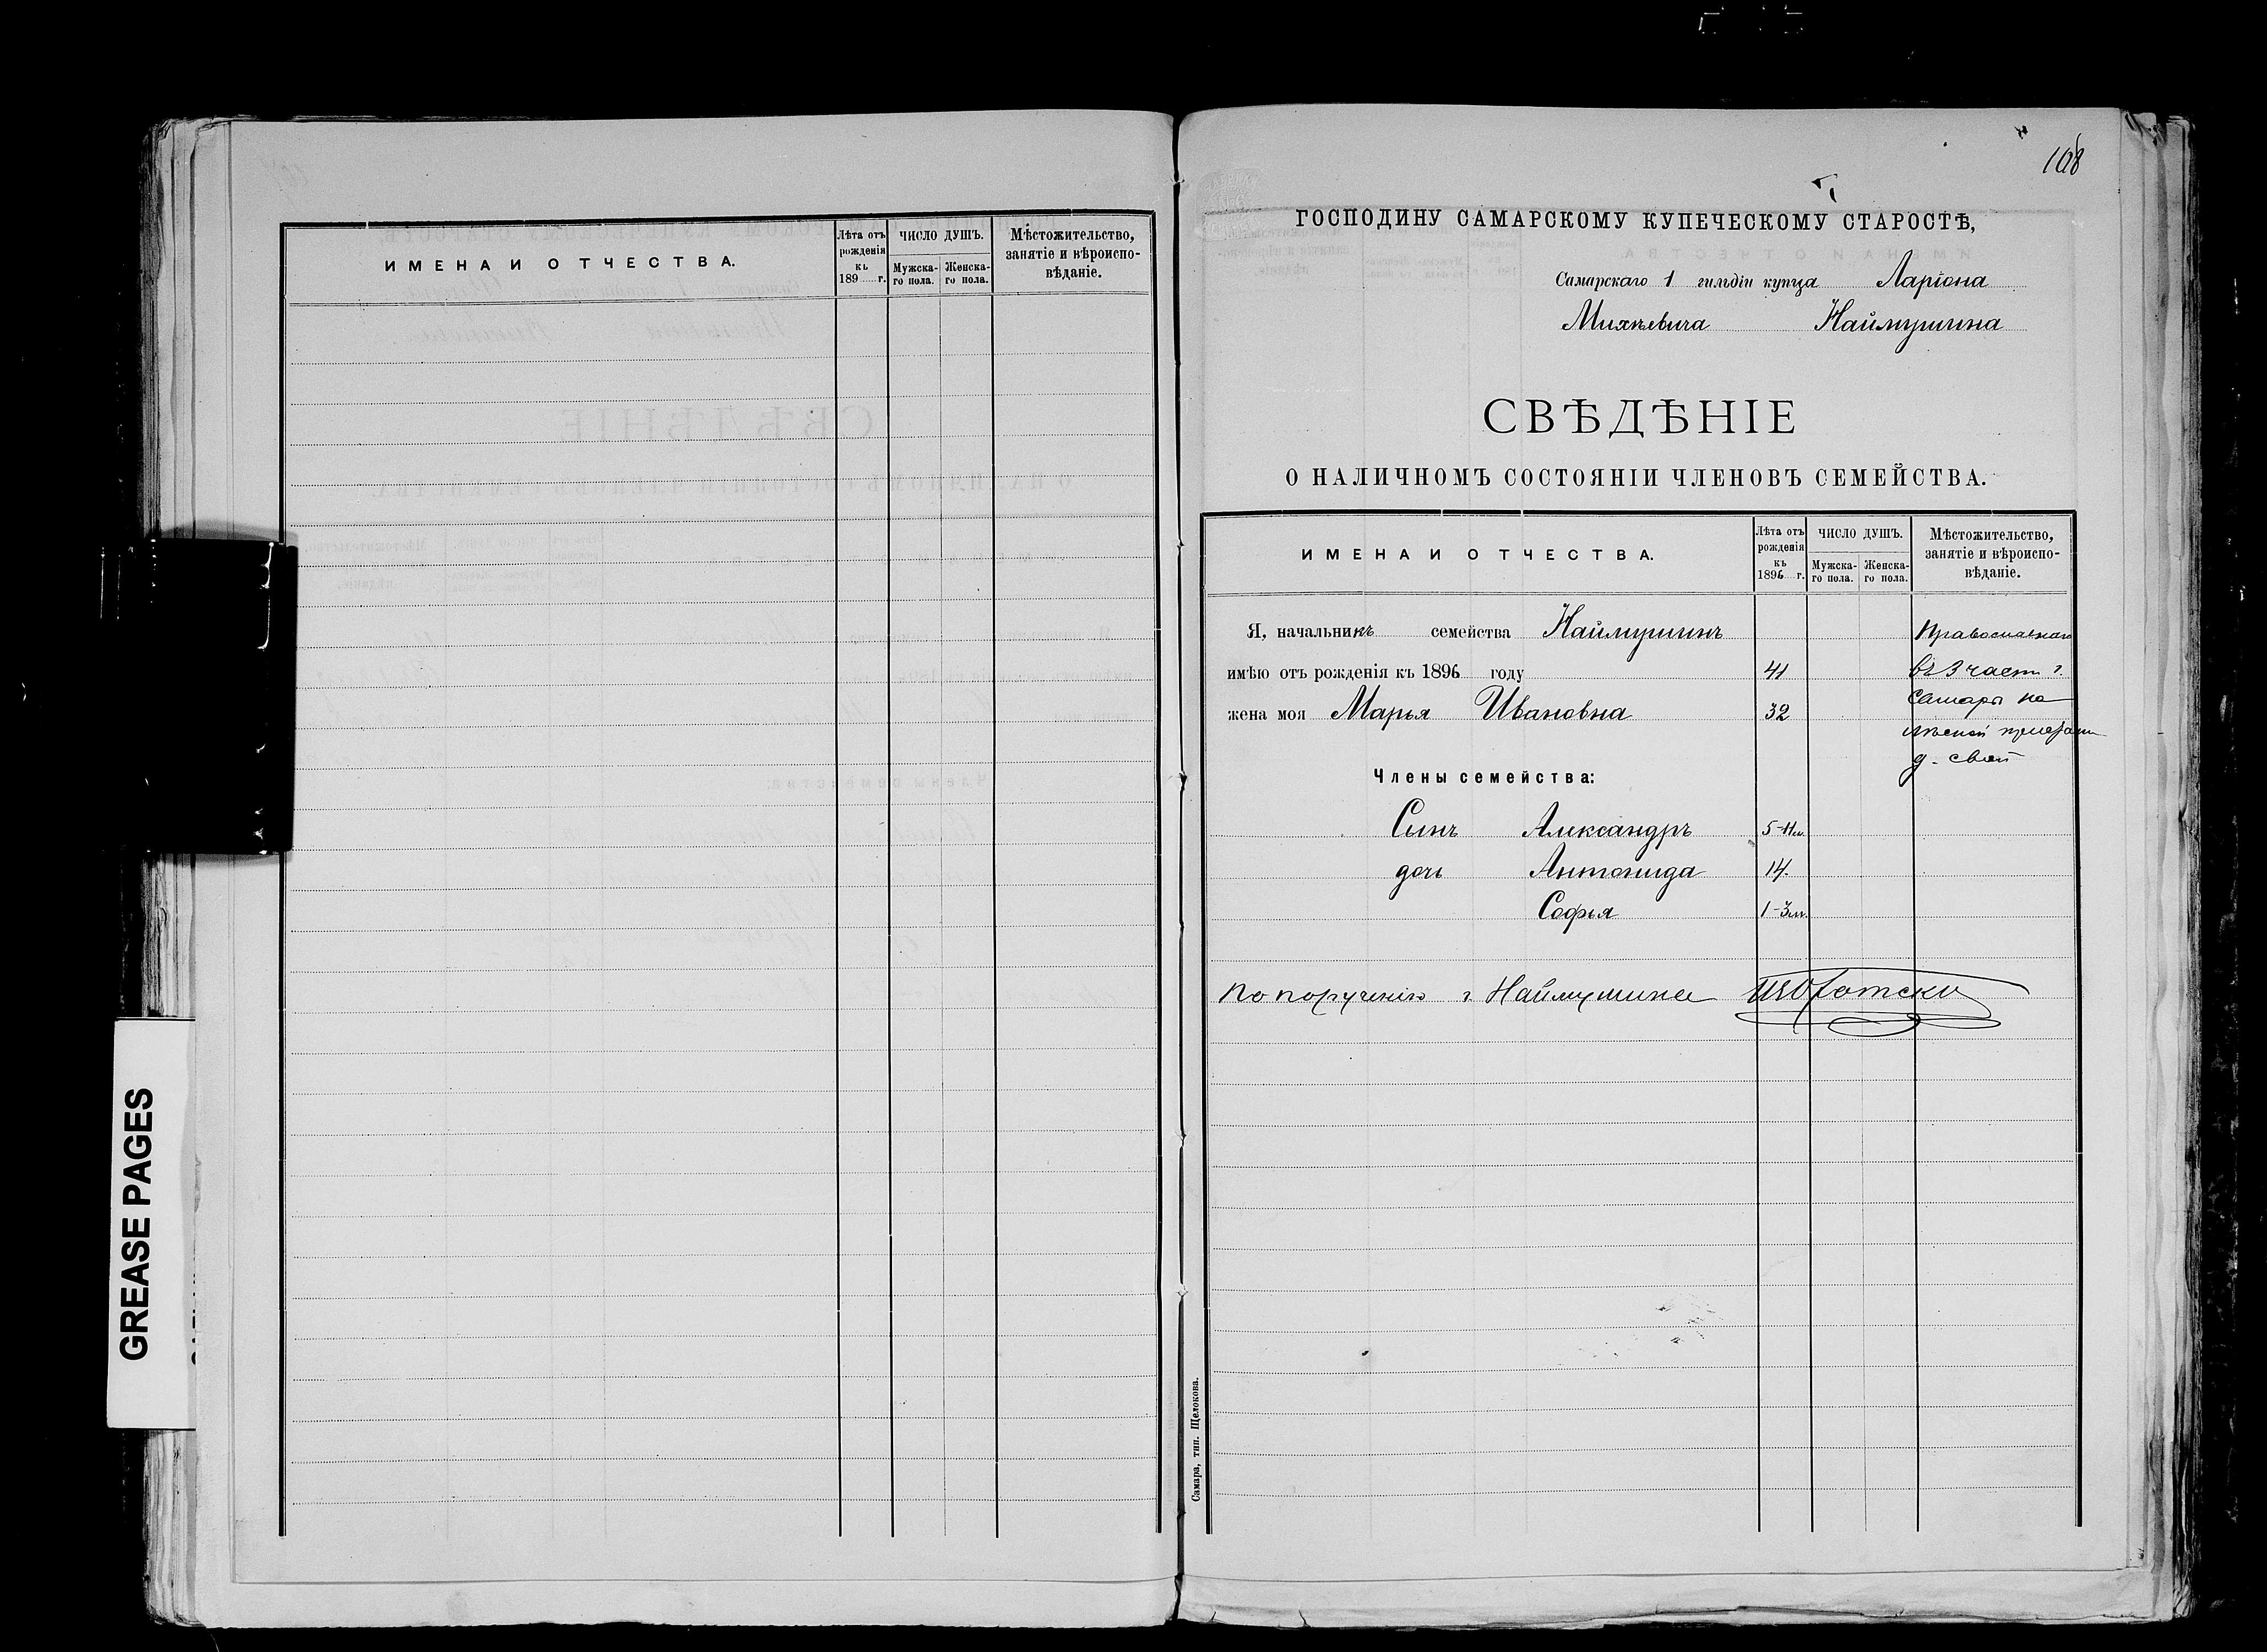 ИМЕНА И ОТЧЕСТВА.
Лѣта отъ рожденія къ 189 г.
ЧИСЛО ДУШЪ.
Мужска-го пола.
Женска-го пола.
Мѣстожительство,
занятіе и вѣроиспо-
вѣданіе.
GREASE PAGES
108
ГОСПОДИНУ САМАРСКОМУ КУПЕЧЕСКОМУ СТАРОСТѢ,
Самарскаго 1 гильдіи купца Ларіона
Михѣевича Наймушина
СВѢДѢНІЕ
О НАЛИЧНОМЪ СОСТОЯНІИ ЧЛЕНОВЪ СЕМЕЙСТВА.
ИМЕНА И ОТЧЕСТВА.
Лѣта отъ рожденія къ 1896 г.
ЧИСЛО ДУШЪ.
Мужска-го пола.
Женска-го пола.
Мѣстожительство,
занятіе и вѣроиспо-
вѣданіе.
Я, начальникъ семейства Наймушинъ Православнаго
имѣю отъ рожденія къ 1896 году 41 въ 3 части г.
Самары на
жена моя Марья Ивановна 32
д. свой
Члены семейства:
Сынъ Александръ 5-11м.
дочь Антонида 14.
Софья 1-3м.
По порученію г. Наймушина
Самара, тип. Щелокова.